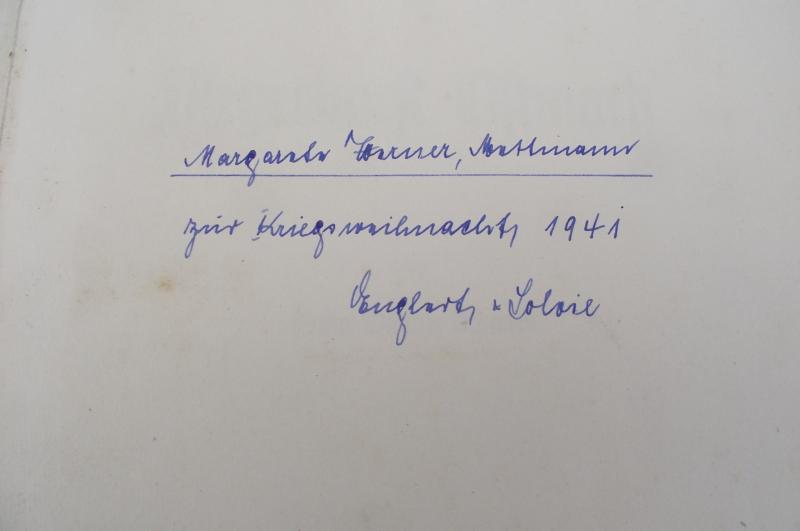 Margarete Werner, Mettmann
zur Kriegsweihnacht, 1941
Englert,